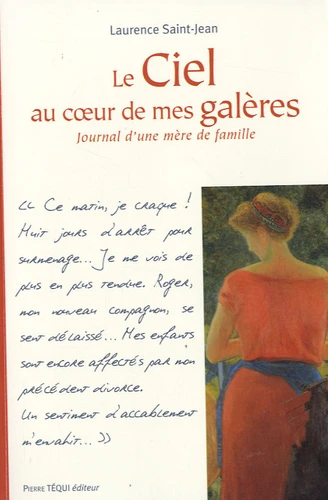 Laurence Saint-Jean
Le Ciel
au cœur de mes galères
Journal d'une mère de famille
« Ce matin, je craque !
Huit jours d'arrêt pour
surmenage... Je me vois de
plus en plus tendue. Roger,
mon nouveau compagnon, se
sent délaissé... Mes enfants
sont encore affectés par mon
précédent divorce.
Un sentiment d'accablement
m'envahit... »
PIERRE TÉQUI éditeur